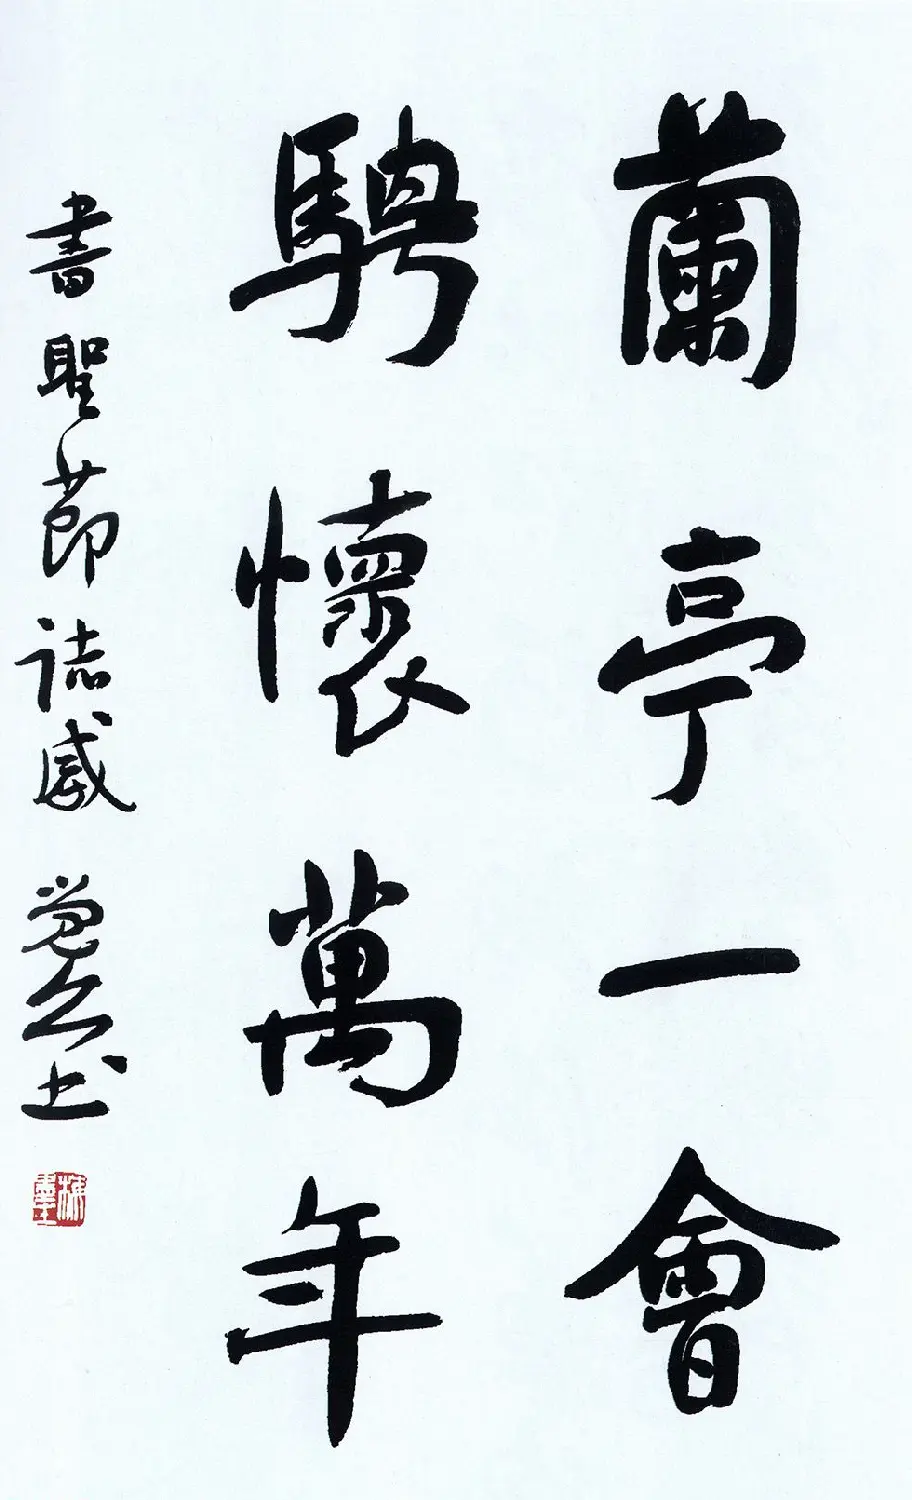 蘭亭一會
騁懷萬年
書聖節誌感